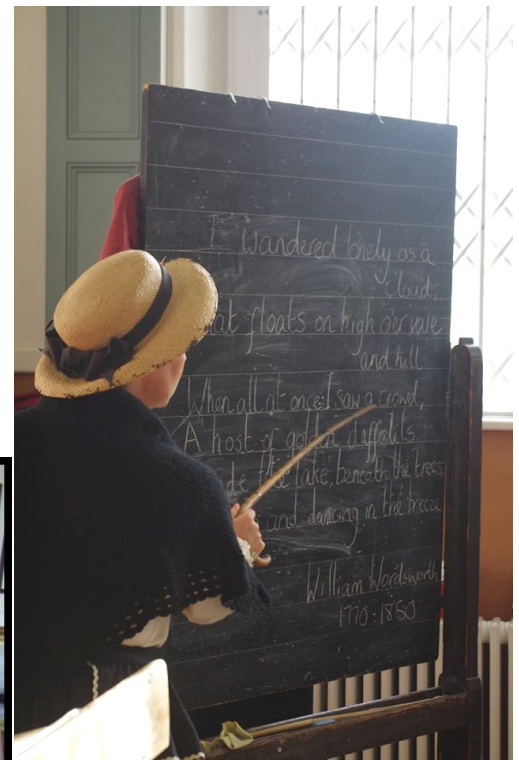 I wandered lonely as a
cloud,
at floats on high o'er vale
and hill
When all at once I saw a crowd,
A host of golden daffodils.
de the lake, beneath the trees
and dancing in the breeze
William Wordsworth
1770-1850